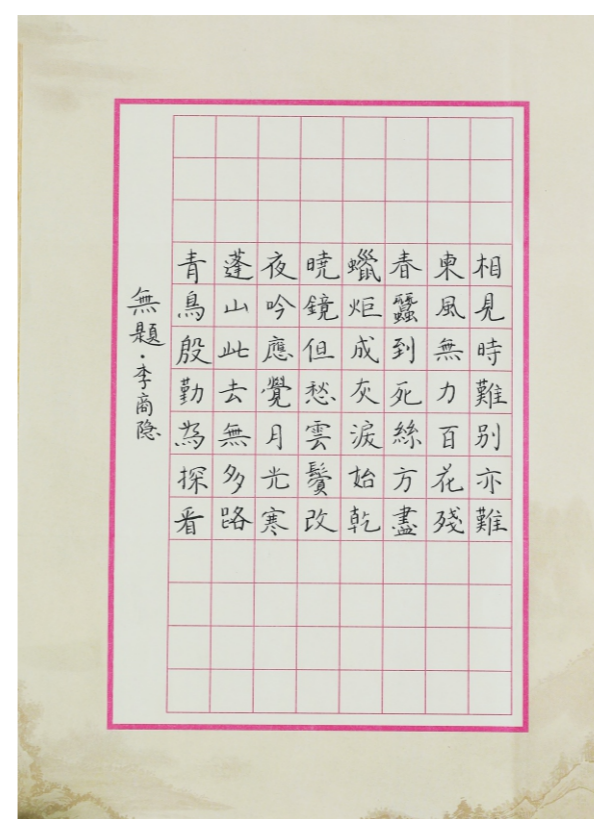 相見時難別亦難
東風無力百花殘
春蠶到死絲方盡
蠟炬成灰淚始乾
曉鏡但愁雲鬢改
夜吟應覺月光寒
蓬山此去無多路
青鳥殷勤為探看
無題·李商隐